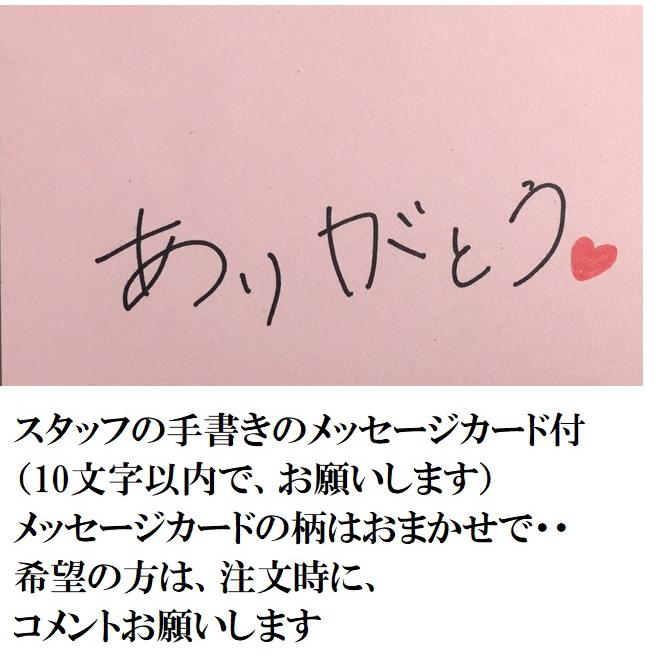 ありがとう
スタッフの手書きのメッセージカード付
（10文字以内で、お願いします）
メッセージカードの柄はおまかせで・・
希望の方は、注文時に、
コメントお願いします